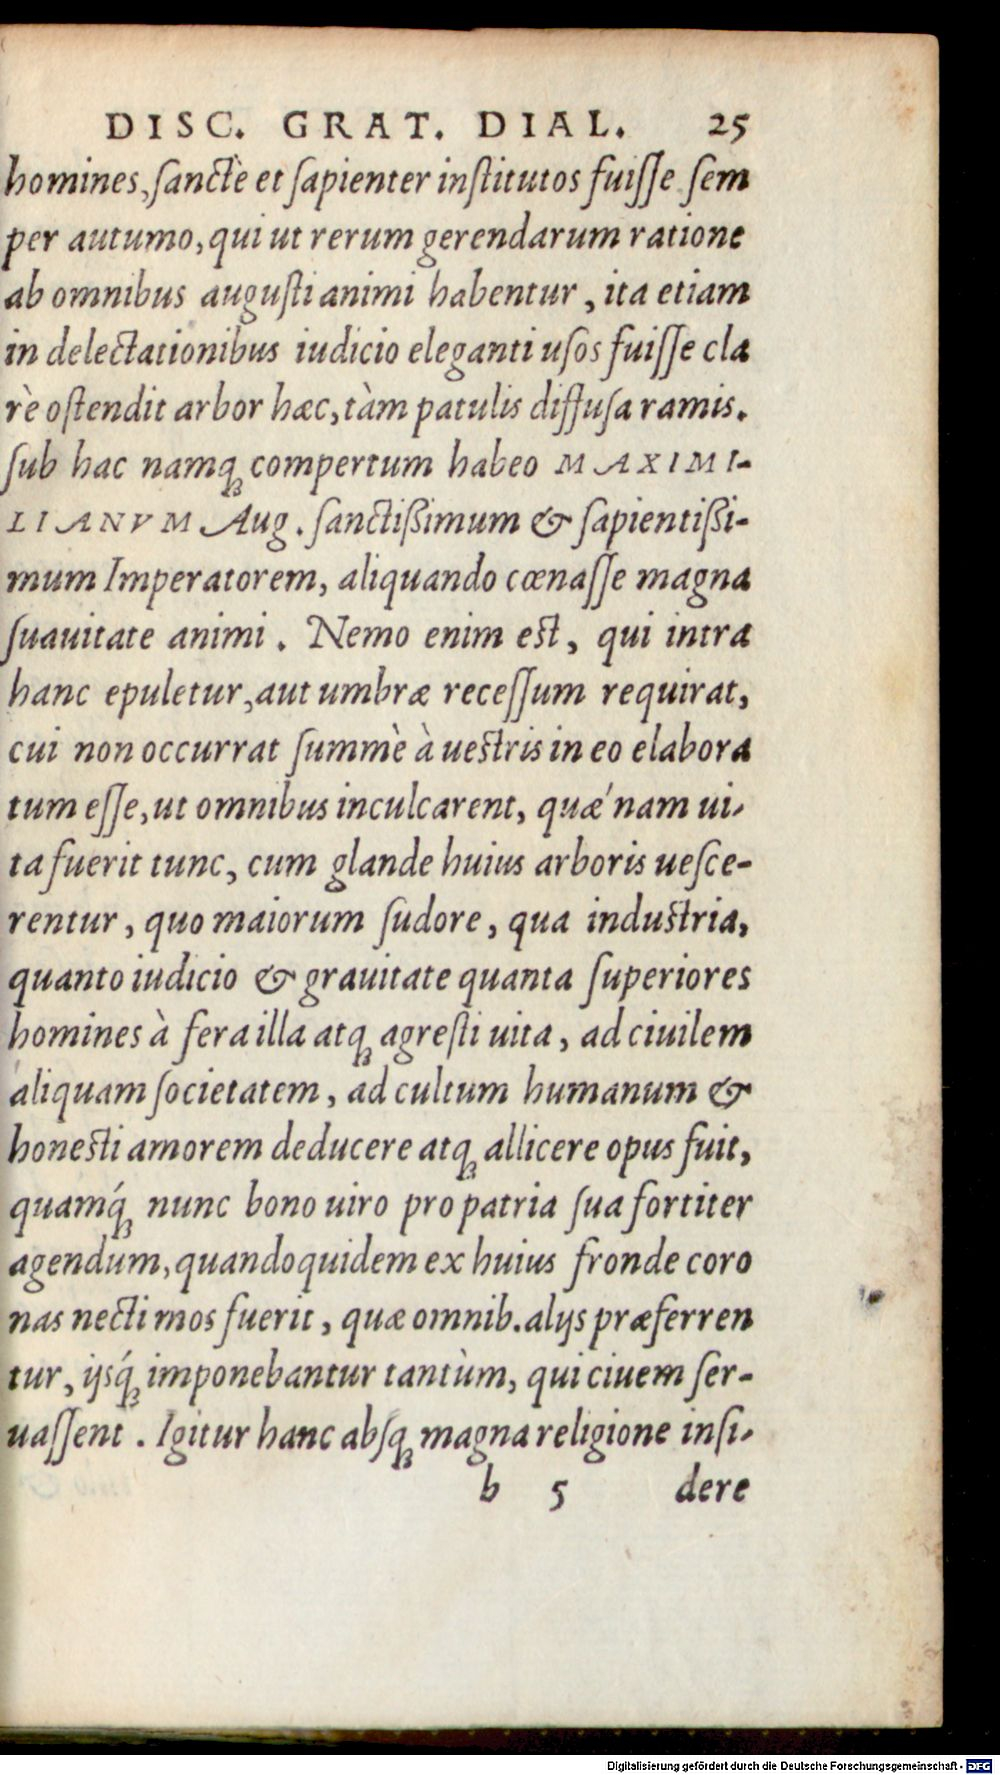 DISC. GRAT. DIAL. 25
homines, ſanctè et ſapienter inſtitutos fuiſſe ſem
per autumo, qui ut rerum gerendarum ratione
ab omnibus auguſti animi habentur, ita etiam
in delectationibus iudicio eleganti uſos fuiſſe cla
rè oſtendit arbor hæc, tàm patulis diffuſa ramis.
ſub hac namq́ꝫ compertum habeo MAXIMI-
LIANVM Aug. ſanctißimum & ſapientißi-
mum Imperatorem, aliquando cœnaſſe magna
ſuauitate animi. Nemo enim eſt, qui intra
hanc epuletur, aut umbræ receſſum requirat,
cui non occurrat ſummè à ueſtris in eo elabora
tum eſſe, ut omnibus inculcarent, quæ´nam ui-
ta fuerit tunc, cum glande huius arboris ueſce-
rentur, quo maiorum ſudore, qua induſtria,
quanto iudicio & grauitate quanta ſuperiores
homines à fera illa atqꝫ agreſti uita, ad ciuilem
aliquam ſocietatem, ad cultum humanum &
honeſti amorem deducere atqꝫ allicere opus fuit,
quamq́ꝫ nunc bono uiro pro patria ſua fortiter
agendum, quandoquidem ex huius fronde coro
nas necti mos fuerit, quæ omnib. alijs præferren
tur, ijsq́ꝫ imponebantur tantùm, qui ciuem ſer-
uaſſent. Igitur hanc abſqꝫ magna religione inſi-
b 5 dere
Digitalisierung gefördert durch die Deutsche Forschungsgemeinschaft - DFG